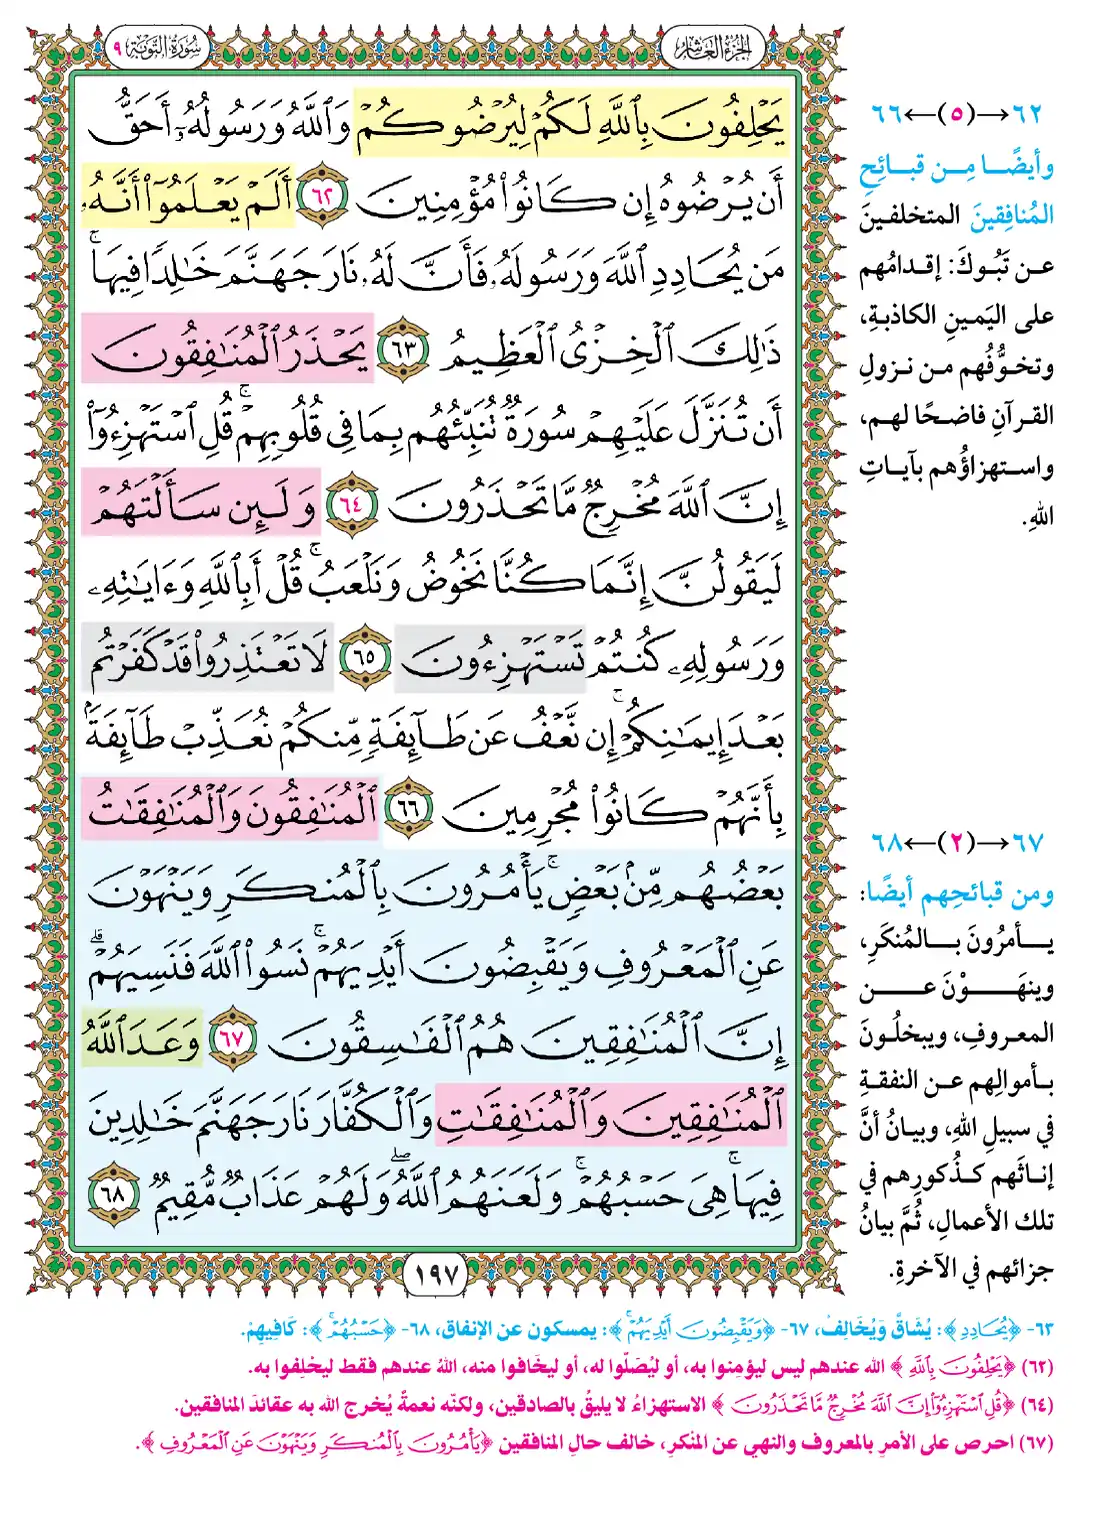 الجزء العاشر
سورة التوبة ٩
يَحْلِفُونَ بِٱللَّهِ لَكُمْ لِيُرْضُوكُمْ وَٱللَّهُ وَرَسُولُهُۥٓ أَحَقُّ
أَن يُرْضُوهُ إِن كَانُوا۟ مُؤْمِنِينَ ٦٢ أَلَمْ يَعْلَمُوٓا۟ أَنَّهُۥ
مَن يُحَادِدِ ٱللَّهَ وَرَسُولَهُۥ فَأَنَّ لَهُۥ نَارَ جَهَنَّمَ خَٰلِدًا فِيهَا ۚ
ذَٰلِكَ ٱلْخِزْىُ ٱلْعَظِيمُ ٦٣ يَحْذَرُ ٱلْمُنَٰفِقُونَ
أَن تُنَزَّلَ عَلَيْهِمْ سُورَةٌ تُنَبِّئُهُم بِمَا فِى قُلُوبِهِمْ ۚ قُلِ ٱسْتَهْزِءُوٓا۟
إِنَّ ٱللَّهَ مُخْرِجٌ مَّا تَحْذَرُونَ ٦٤ وَلَئِن سَأَلْتَهُمْ
لَيَقُولُنَّ إِنَّمَا كُنَّا نَخُوضُ وَنَلْعَبُ ۚ قُلْ أَبِٱللَّهِ وَءَايَٰتِهِۦ
وَرَسُولِهِۦ كُنتُمْ تَسْتَهْزِءُونَ ٦٥ لَا تَعْتَذِرُوا۟ قَدْ كَفَرْتُم
بَعْدَ إِيمَٰنِكُمْ ۚ إِن نَّعْفُ عَن طَآئِفَةٍ مِّنكُمْ نُعَذِّبْ طَآئِفَةًۢ
بِأَنَّهُمْ كَانُوا۟ مُجْرِمِينَ ٦٦ ٱلْمُنَٰفِقُونَ وَٱلْمُنَٰفِقَٰتُ
بَعْضُهُم مِّنۢ بَعْضٍ ۚ يَأْمُرُونَ بِٱلْمُنكَرِ وَيَنْهَوْنَ
عَنِ ٱلْمَعْرُوفِ وَيَقْبِضُونَ أَيْدِيَهُمْ ۚ نَسُوا۟ ٱللَّهَ فَنَسِيَهُمْ ۗ
إِنَّ ٱلْمُنَٰفِقِينَ هُمُ ٱلْفَٰسِقُونَ ٦٧ وَعَدَ ٱللَّهُ
ٱلْمُنَٰفِقِينَ وَٱلْمُنَٰفِقَٰتِ وَٱلْكُفَّارَ نَارَ جَهَنَّمَ خَٰلِدِينَ
فِيهَا ۚ هِىَ حَسْبُهُمْ ۚ وَلَعَنَهُمُ ٱللَّهُ ۖ وَلَهُمْ عَذَابٌ مُّقِيمٌ ٦٨
١٩٧
٦٢→(٥)←٦٦
وأيضًا مِن قبائحِ
المُنافِقينَ المتخلفينَ
عن تَبُوكَ: إقدامُهم
على اليَمينِ الكاذبةِ،
وتخوُّفُهم من نزولِ
القرآنِ فاضحًا لهم،
واستهزاؤُهم بآياتِ
اللهِ.
٦٧→(٢)←٦٨
ومن قبائحِهم أيضًا:
يأمرُونَ بالمُنكَرِ،
وينهَوْنَ عن
المعروفِ، ويبخلُونَ
بأموالِهم عن النفقةِ
في سبيلِ اللهِ، وبيانُ أنَّ
إناثَهم كذُكورِهم في
تلك الأعمالِ، ثُمَّ بيانُ
جزائهم في الآخرةِ.
٦٣- ﴿يُحَادِدِ﴾: يُشَاقُّ وَيُخَالِفُ، ٦٧- ﴿وَيَقْبِضُونَ أَيْدِيَهُمْ ۚ﴾: يمسكون عن الإنفاق، ٦٨- ﴿حَسْبُهُمْ ۚ﴾: كَافِيهِمْ.
(٦٢) ﴿يَحْلِفُونَ بِٱللَّهِ﴾ الله عندهم ليس ليؤمِنوا به، أو ليُصَلّوا له، أو ليخَافوا منه، اللهُ عندهم فقط ليحْلِفوا به.
(٦٤) ﴿قُلِ ٱسْتَهْزِءُوٓا۟ إِنَّ ٱللَّهَ مُخْرِجٌ مَّا تَحْذَرُونَ﴾ الاستهزاءُ لا يليقُ بالصادقين، ولكنّه نعمةٌ يُخرج الله به عقائدَ المنافقين.
(٦٧) احرص على الأمرِ بالمعروف والنهي عن المنْكرِ، خالف حالَ المنافقين ﴿يَأْمُرُونَ بِٱلْمُنكَرِ وَيَنْهَوْنَ عَنِ ٱلْمَعْرُوفِ﴾.